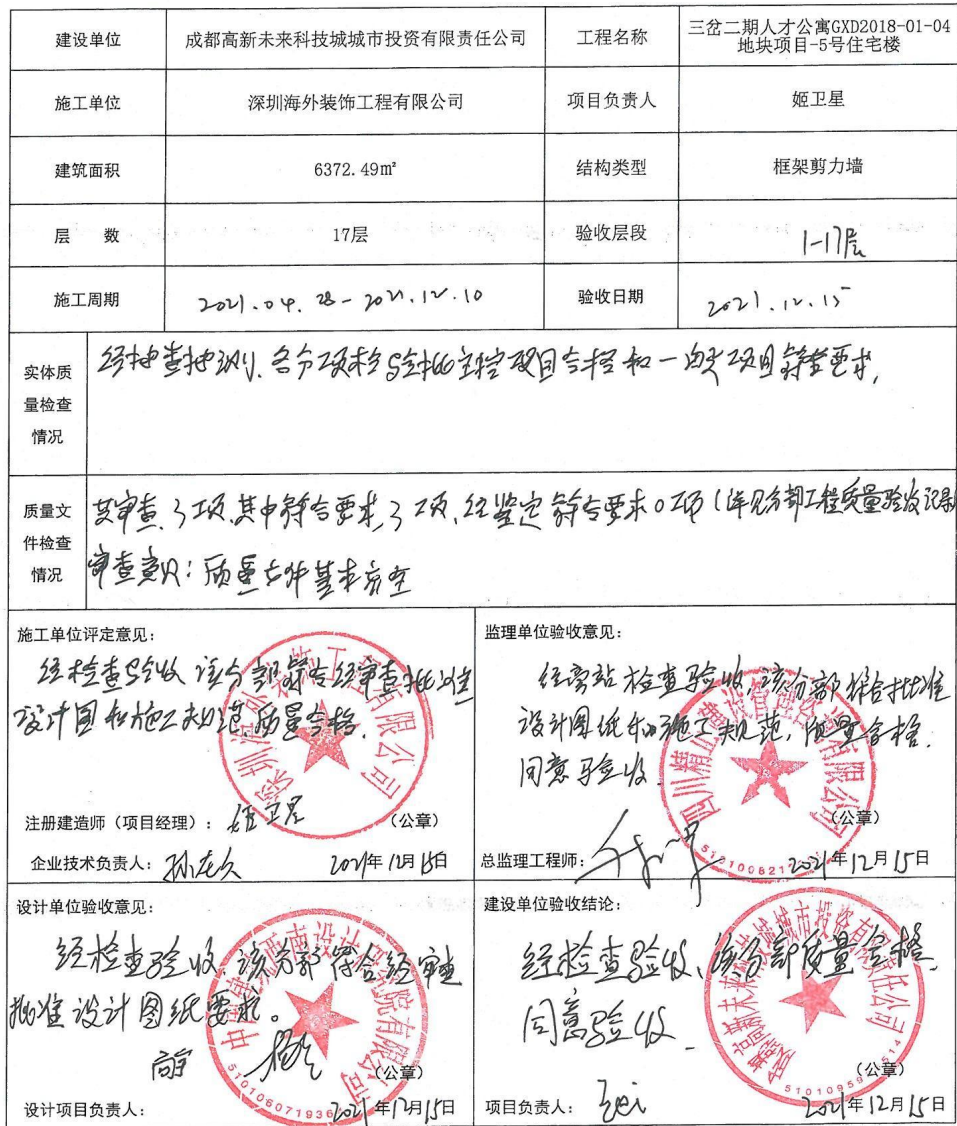 建设单位 成都高新未来科技城城市投资有限责任公司 工程名称 三岔二期人才公寓GXD2018-01-04
地块项目-5号住宅楼
施工单位 深圳海外装饰工程有限公司 项目负责人 姬卫星
建筑面积 6372.49m² 结构类型 框架剪力墙
层 数 17层 验收层段 1-17层
施工周期 2021.04.28-2021.12.10 验收日期 2021.12.15
实体质
量检查
情况
经抽查抽测,各分项检验批主控项目合格和一般项目符合要求,
质量文
件检查
情况
共审查3项,其中符合要求3项,经鉴定符合要求0项(详见分部工程质量验收记录)
审查意见:质量文件基本完全
施工单位评定意见:
经检查验收 该分部符合经审查批准
设计图和施工规范,质量合格.
深圳海外装饰工程有限公司
注册建造师(项目经理): 姬卫星 (公章)
企业技术负责人: 2021年12月15日
监理单位验收意见:
经旁站检查验收,该分部符合批准
设计图纸和施工规范,质量合格.
同意验收
(公章)
总监理工程师: 2021年12月15日
设计单位验收意见:
经检查验收,该分部符合经审查
批准设计图纸要求。
510106071936
(公章)
设计项目负责人: 2021年12月15日
建设单位验收结论:
经检查验收,该分部质量合格,
同意验收
成都高新未来科技城城市投资有限责任公司
(公章)
项目负责人: 2021年12月15日